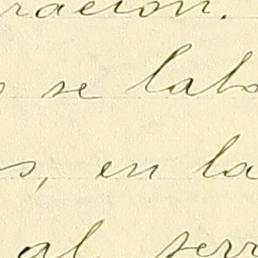 ración.
s se lab
s, en la
al serv